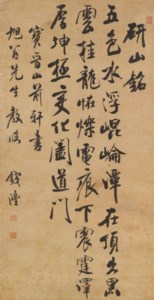 研山銘
五色水浮崐崘潭在頂出黑
雲挂龍怪爍電痕下震霆澤
厚坤極變化闔道門
寶晉山前軒書
旭翁先生教政
錢灃